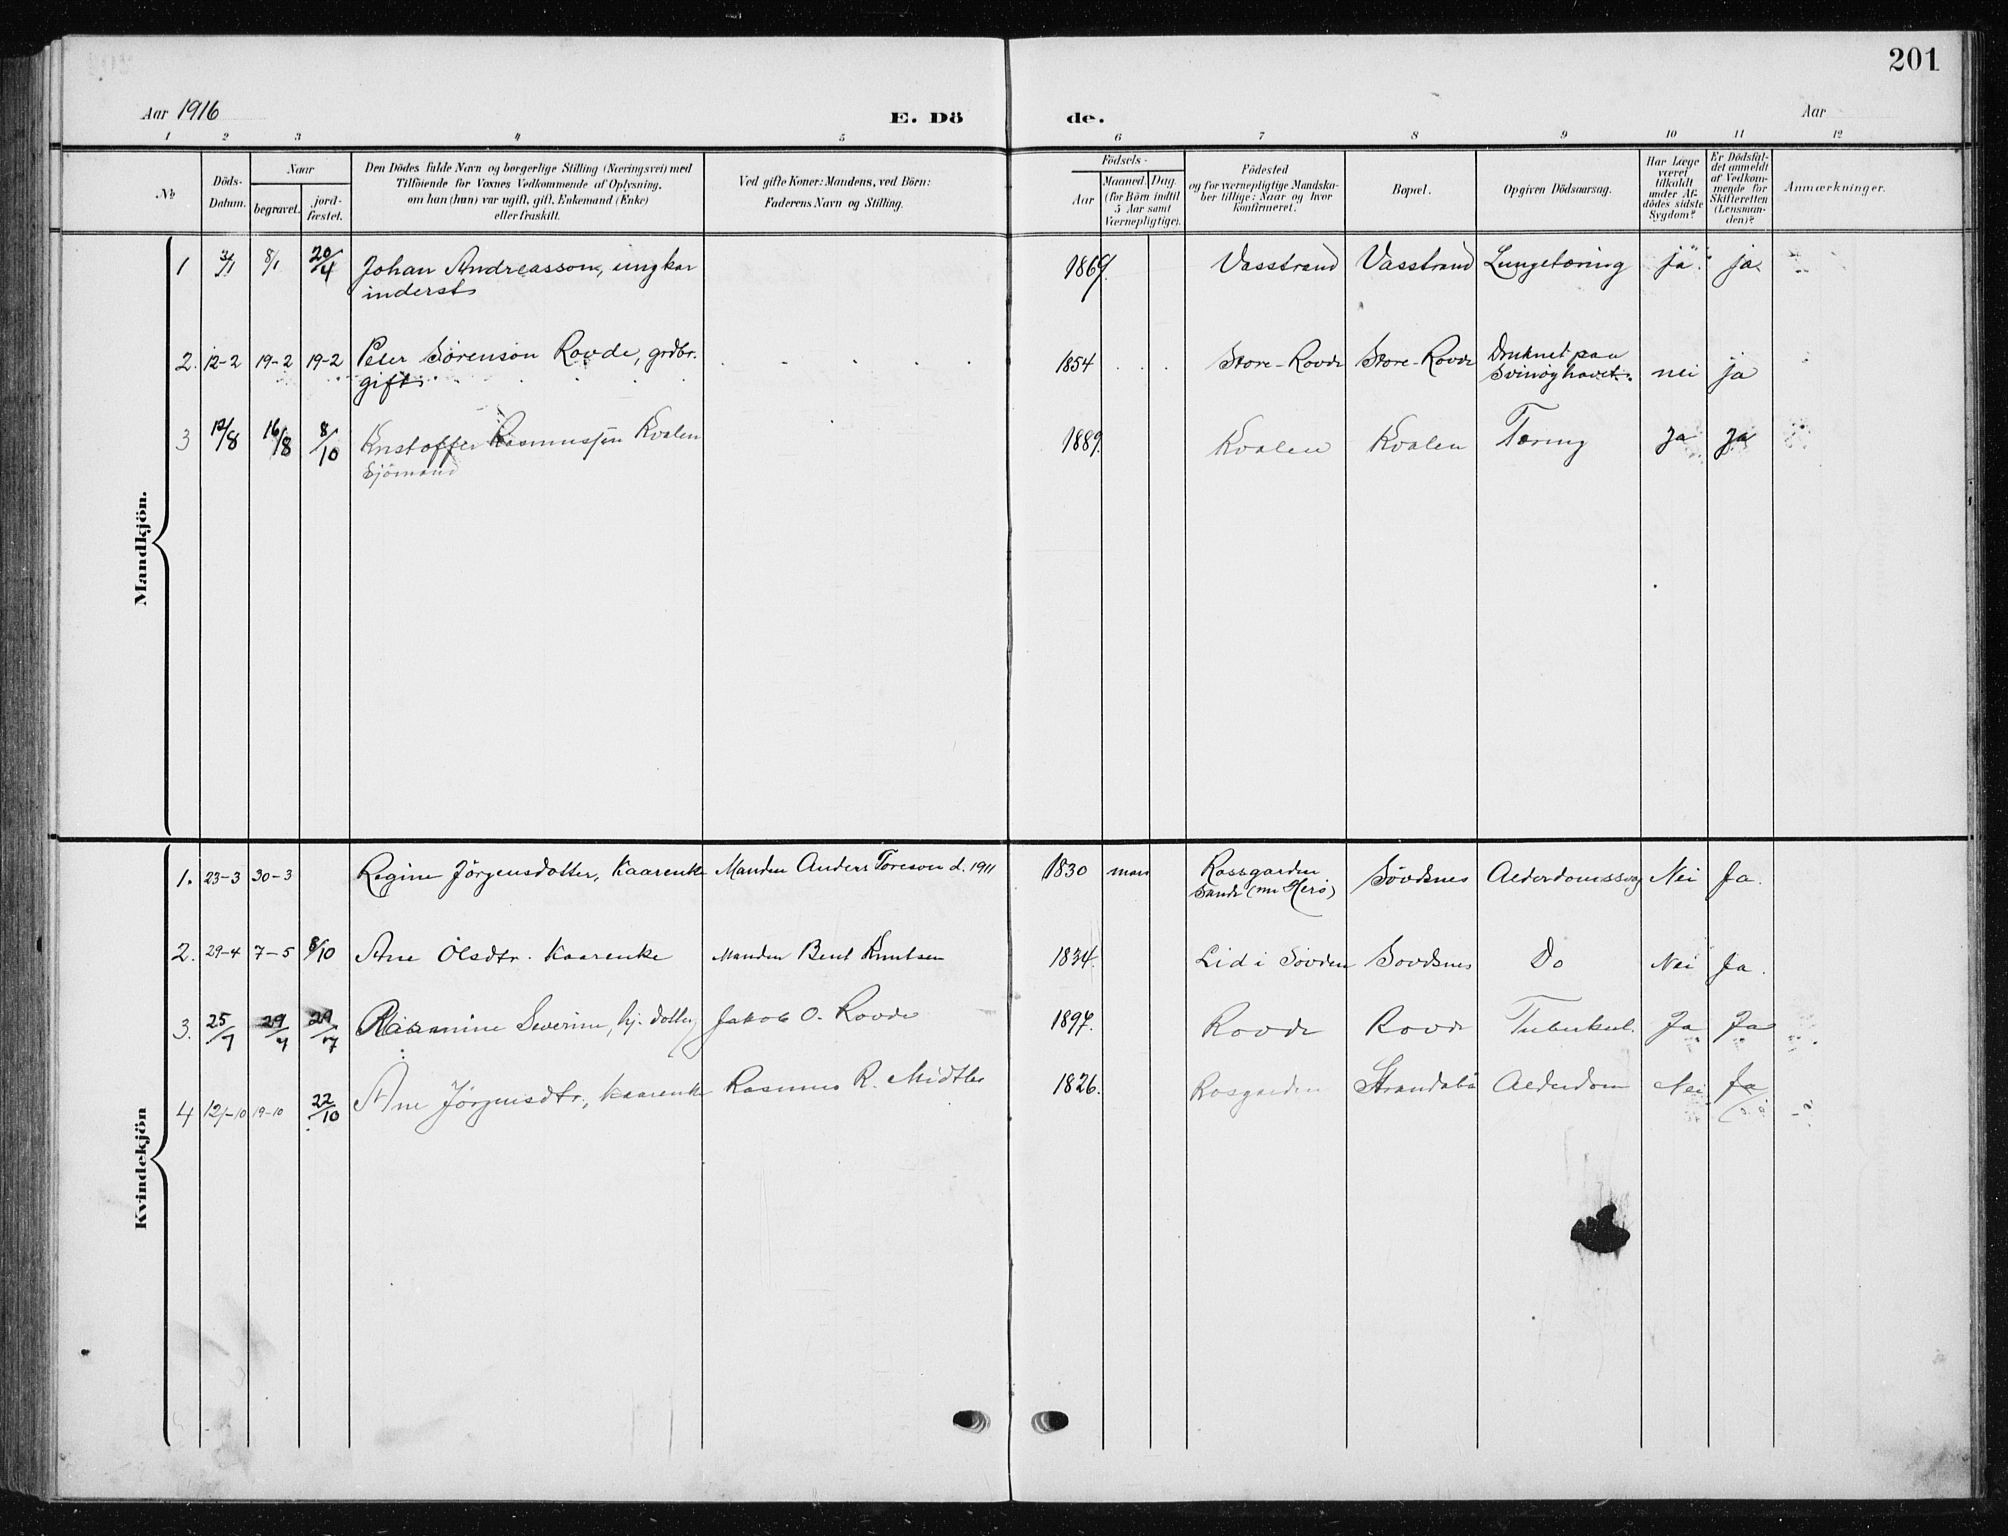 201
Aar 1916
E. Dö
de.
Aar
1 2 3 4 5 6 7 8 9 10 11 12
No.
Döds-Datum.
Naar
begravet.
jord-fæstet.
Den Dödes fulde Navn og borgerlige Stilling (Næringsvei) med
Tilföiende for Voxnes Vedkommende af Oplysning,
om han (hun) var ugift, gift, Enkemand (Enke)
eller fraskilt.
Ved gifte Koner: Mandens, ved Börn:
Faderens Navn og Stilling.
Födsels-
Aar
Maaned. Dag
(for Börn indtil
5 Aar samt
Værnepligtige).
Födested
og for værnepligtige Mandska-
ber tillige: Naar og hvor
konfirmeret.
Bopæl.
Opgiven Dödsaarsag.
Har Læge
været
tilkaldt
under Af-
dödes sidste
Sygdom?
Er Dödsfal-
det anmeldt
af Vedkom-
mende for
Skifteretten
(Lensman-
den)?
Anmærkninger.
Mandkjön.
1 3/1 8/1 20/4 Johan Andreasson, ungkar 1869 Vasstrand Vasstrand Lungetæring ja ja
inderst
2. 12-2 19-2 19-2 Peter Sörenson Rovde, grdbr. 1854 Store-Rovde Store-Rovde Druknet paa
gift. Svinöyhavet. nei ja
3 12/8 16/8 8/10 Kristoffer Rasmussen Kvalen 1889. Kvalen Kvalen Tæring Ja Ja
Sjömand
Kvindekjön
1. 23-3 30-3 Regine Jörgensdotter, kaarenke Manden Anders Toreson d. 1911 1830 mars Rossgarden Sövdsnes Alderdomssvag Nei Ja.
Sande (nu Herö)
2. 29-4 7-5 8/10 Ane Olsdtr. kaarenke Manden Bent Knutsen 1834. Lid i Sövden Sovdsnes Do Nei Ja.
3. 25/7 29/7 29/7 Rasmine Severine, hj. dotter, Jakob O. Rovde 1897. Rovde Rovde Tuberkul. Ja Ja
4 12-10 19-10 22/10 Ane Jörgensdtr., kaarenke Rasmus R. Midtbø 1826. Rosgarden Strandabö Alderdom Nei Ja